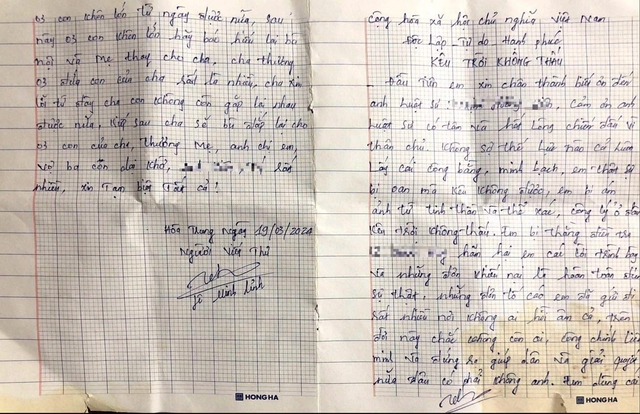 03 con khôn lớn từ, ngày được nữa, sau
này 03 con khôn lớn hãy báo hiếu lại bà
nội và Mẹ thay cho cha, cha thương
03 đứa con của cha rất là nhiều, cha xin
lỗi từ đây cha con không còn gặp lại nhau
được nữa, kiếp sau cha sẽ bù đắp lại cho
03 con của cha, thương Mẹ, anh chị em,
vợ ba còn dài khờ, rất
nhiều, xin Tạm biệt Tất cả!
Hòa Trung Ngày 19/03/2024
Người Viết Thư
Lê Minh Linh
HONGHA
Cộng hòa xã hội chủ nghĩa Việt Nam
Độc Lập Tự do Hạnh phúc
KÊU TRỜI KHÔNG THẤU
Đầu Tiên em xin chân thành biết ơn đến
anh Luật sư Cảm ơn anh
Luật sư có tâm
thân chủ không sợ thế Lực nào cả
Lấy cái công bằng, minh bạch, em thật sự
bị oan mà kêu không được, em bị ám
ảnh từ tinh thần và thể xác, công lý ở đâu
Kêu trời không thấu. Em bị thằng điều tra
hãm hại em cái tôi trình bày
và những đơn khiếu nại là hoàn toàn đúng
sự thật, những đơn tố cáo em đã gửi đi
rất nhiều nơi không ai hồi âm cả, trên
đời này chắc không còn ai, công chính liêm
minh và đứng ra giúp dân và giải quyết
nữa đâu có phải không anh. Em dùng cái
HONGHA